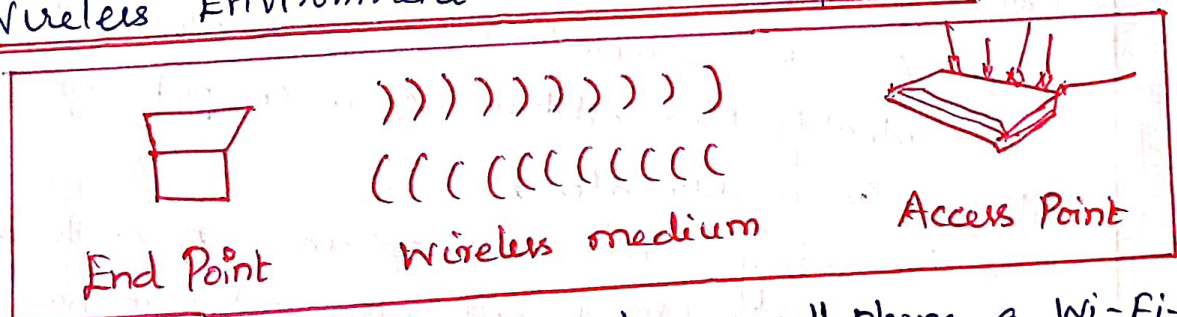 Wireless
End Point
Wireless medium
Access Point
a Wi-Fi-